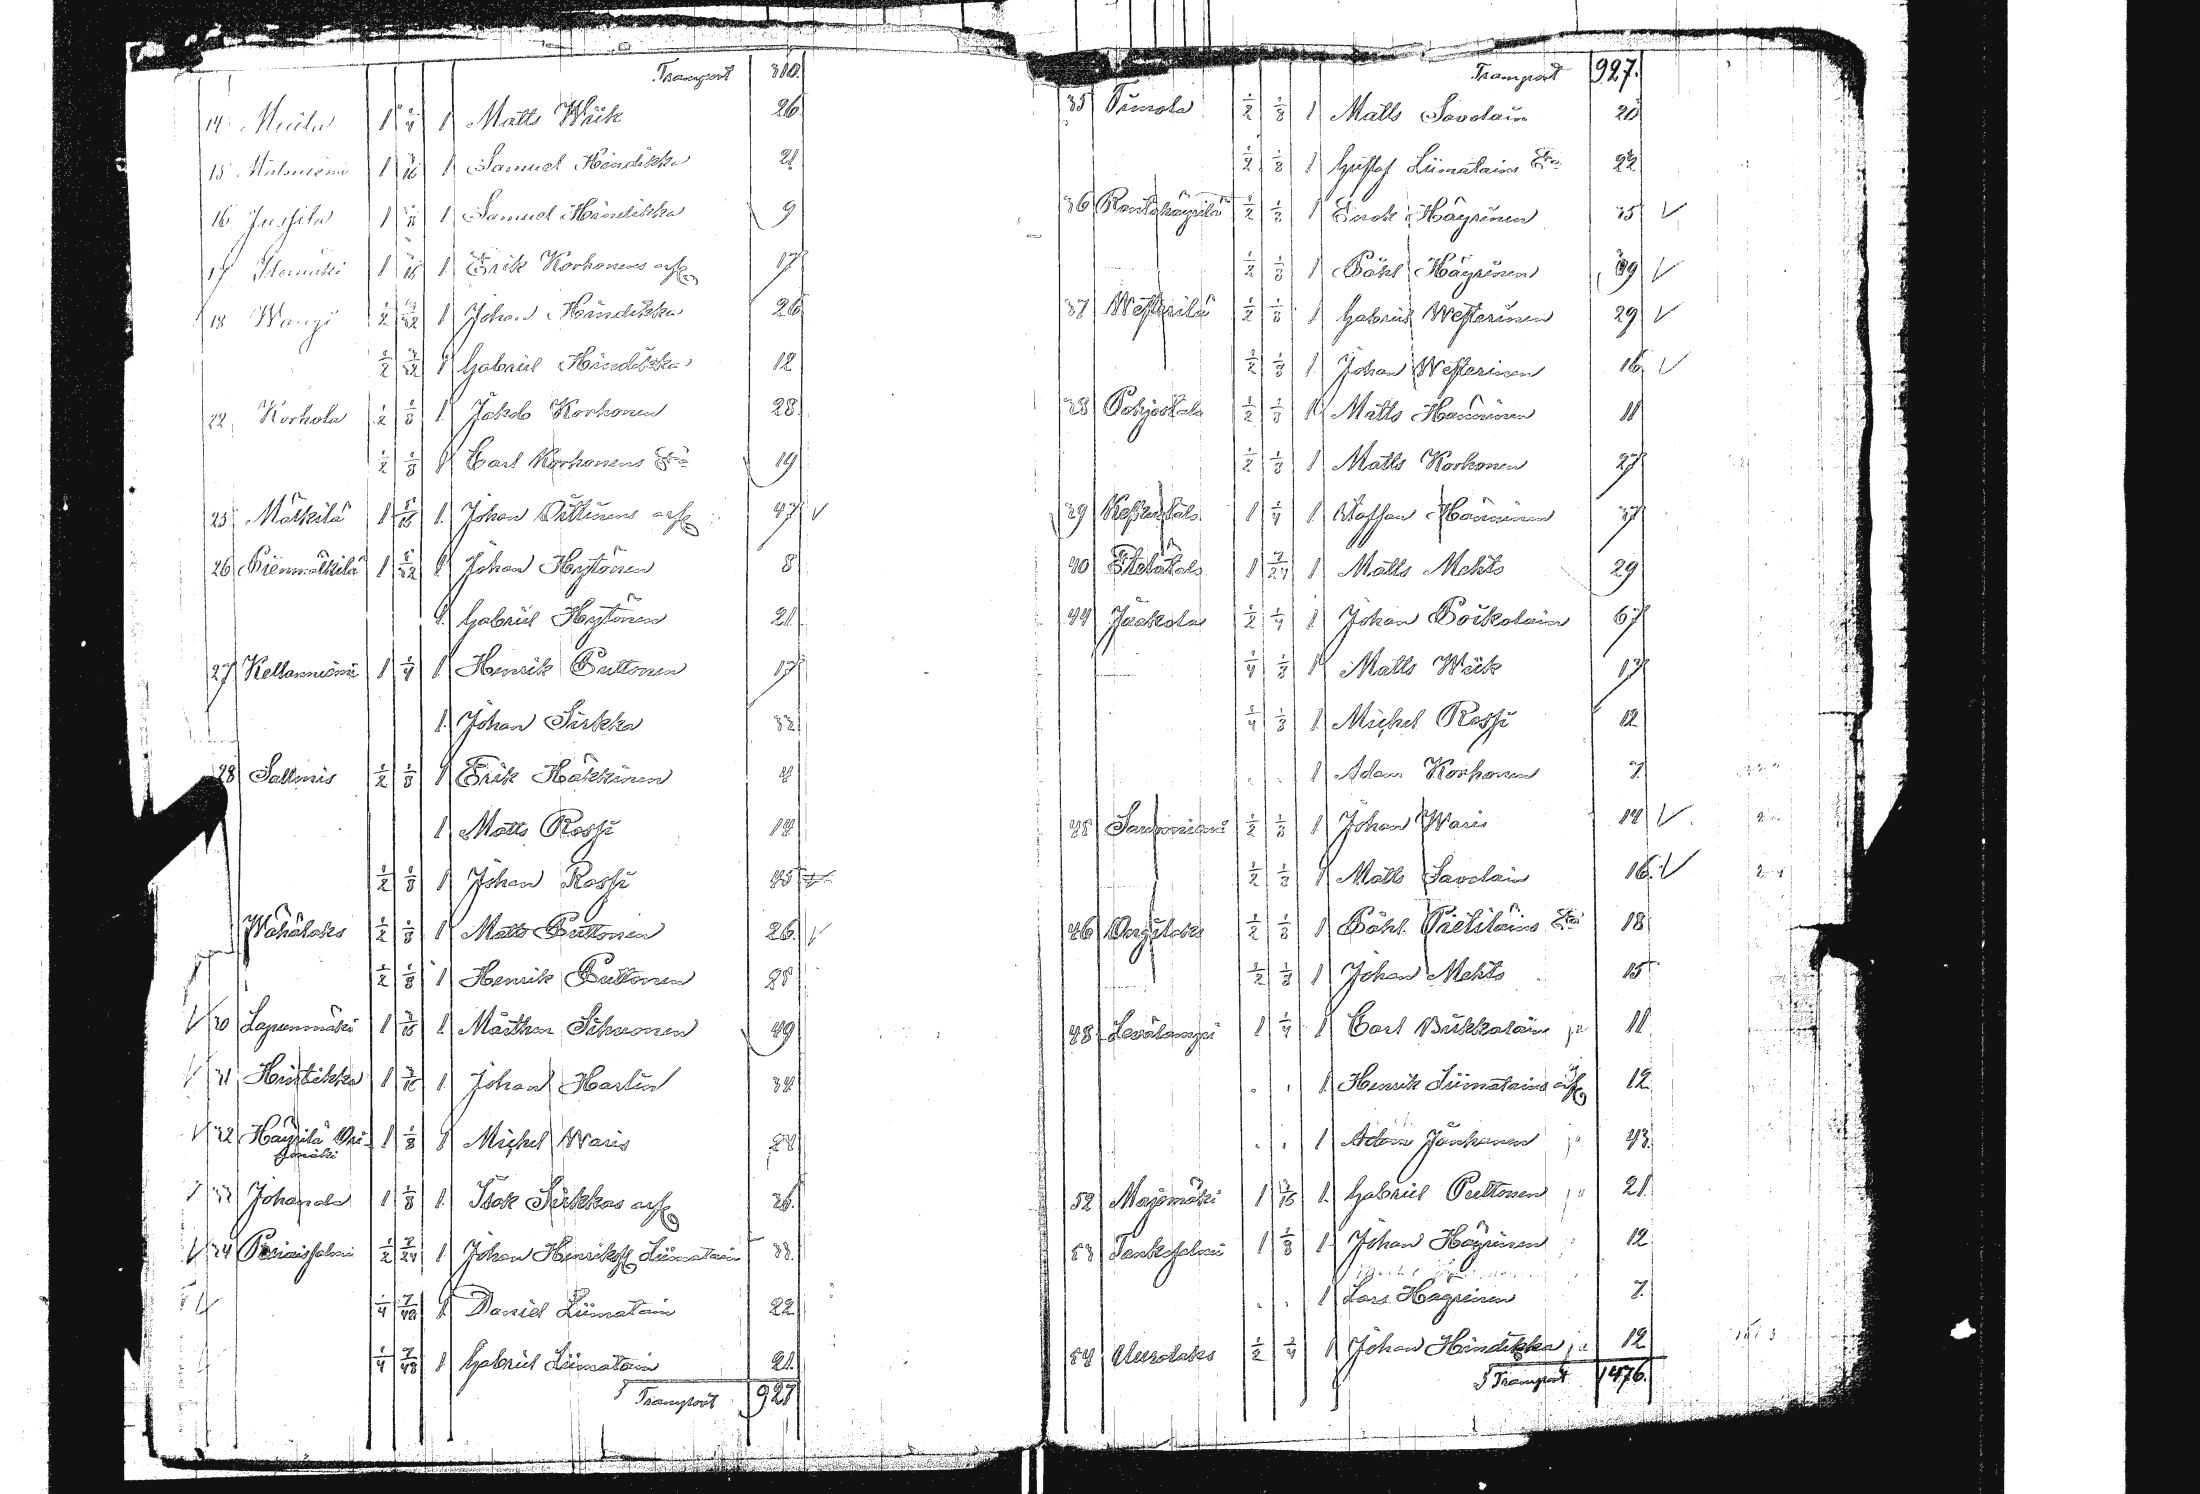 Transport 310.
14 Muila 1 1/4 1 Matts Wiik 26
15 Matoniemi 1 3/16 1 Samuel Hindikka 21
16 Jussila 1 1/8 1 Samuel Hindikka 9
17 Itämäki 1 1/16 1 Erik Korhonens arfv 17
18 Wangi 1/2 3/32 1 Johan Hindikka 26
1/2 3/32 1 Gabriel Hindikka 12
22 Korhola 1/2 1/8 1 Jakob Korhonen 28
1/2 1/8 1 Carl Korhonens Enka 19
25 Mälkilä 1 5/16 1 Johan Pittinens arfv 47 V
26 Pienmälkilä 1 5/32 1 Johan Hytönen 8
1 Gabriel Hytönen 21
27 Kellanniemi 1 1/4 1 Henrik Puttonen 17
1 Johan Sirkka 33
28 Salmis 1/2 1/8 1 Erik Häkkinen 4
1 Matts Rossi 14
1/2 1/8 1 Johan Rossi 45
Wähälaks 1/2 1/8 1 Matts Puttonen 26 V
1/2 1/8 1 Henrik Puttonen 25
V 30 Lapunmäki 1 3/16 1 Mårthen Sihvonen 49
V 31 Hintikka 1 3/16 1 Johan Harlin 34
V 32 Häyrilä 1 1/8 1 Michel Waris 24
33 Johanda 1 1/8 1 Isak Sirkkas arfv 36.
V 34 1/2 7/24 1 Johan Henriks Liimatain 33.
1/4 7/48 1 Daniel Liimatain 22
1/4 7/48 1 Gabriel Liimatain 21.
Transport 927
Transport 927.
35 Timola 1/2 1/8 1 Matts Savolain 20
1/2 1/8 1 Gustaf Liimatains Enka 22
36 Rantahäyrilä 1/2 1/8 1 Enok Häyrinen 35 V
1/2 1/8 1 Påhl Häyrinen 39 V
37 Westerilä 1/2 1/8 1 Gabriel Westerinen 29 V
1/2 1/8 1 Johan Westerinen 16 V
38 Pohjostalo 1/2 1/8 1 Matts Hänninen 11
1/2 1/8 1 Matts Korhonen 27
39 Keskitalo 1 1/4 1 Staffan Hänninen 37
40 Etelätalo 1 7/24 1 Matts Mehto 29
44 Jääkola 1/2 1/4 1 Johan Poikolain 67
1/4 1/8 1 Matts Wiik 17
1/4 1/8 1 Michel Rossi 12
1 Adam Korhonen 7
45 1/2 1/8 1 Johan Waris 14 V
1/2 1/8 1 Matts Savolain 16. V
46 1/2 1/8 1 Påhl Pietiläins Enka 18
1/2 1/8 1 Johan Mehto 15
48 Levälampi 1 1/4 1 Carl Bukkalain 11
1 Henrik Liimatains arfv 12
1 Adam Jänkänen 43.
52 Majomäki 1 3/16 1 Gabriel Puttonen 21
53 1 1/8 1 Johan Häyrinen 12
1 Lars Häyrinen 7.
54 Uurolaks 1/2 1/4 1 Johan Hindikka 12
Transport 1476.